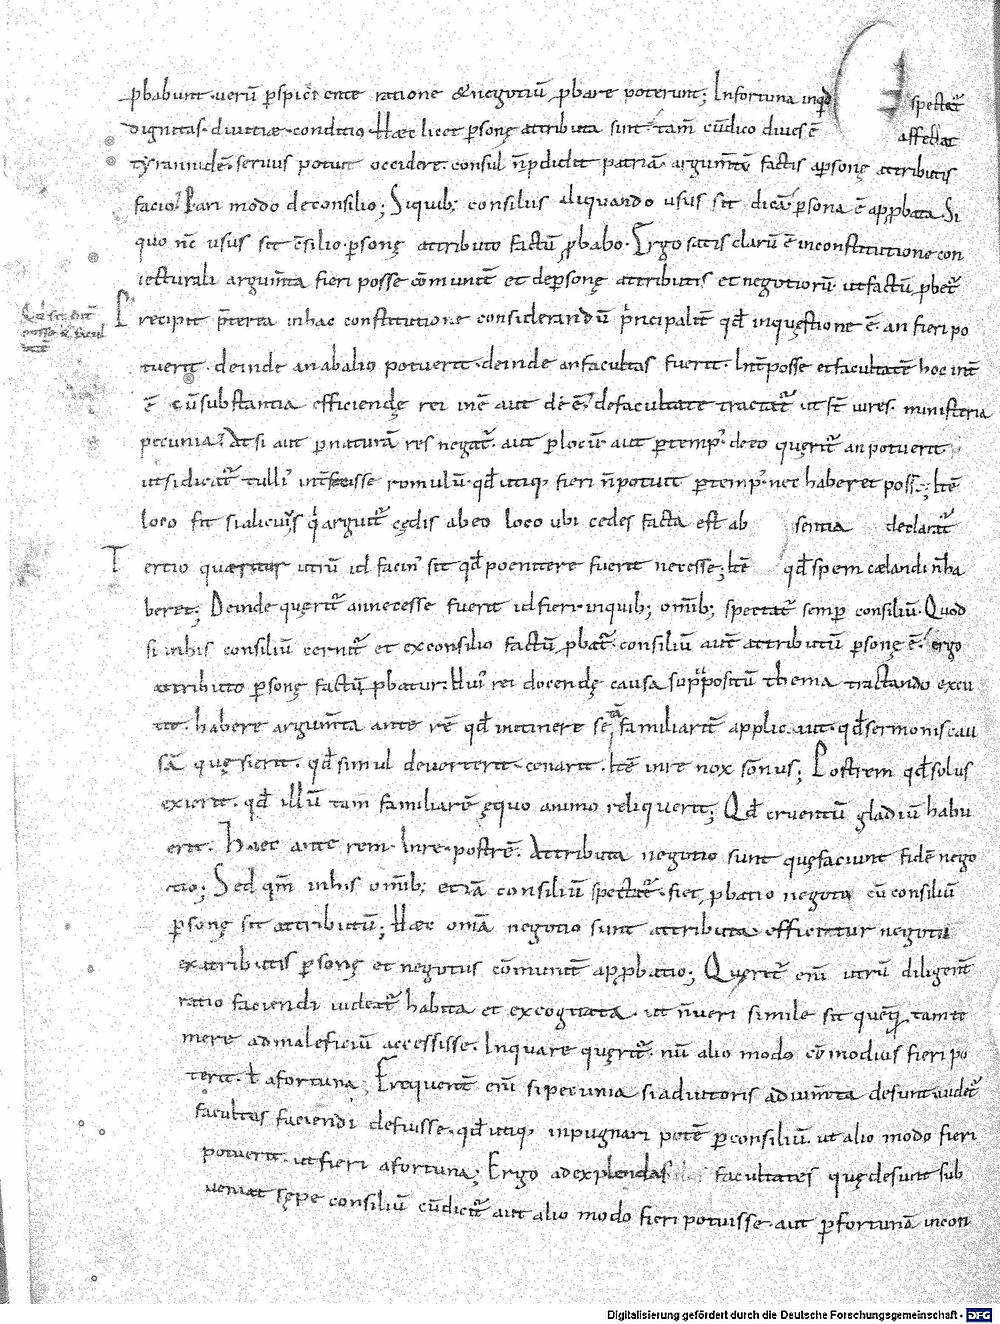 ꝓbabunt· uerū ꝑspici ente ratione & negotiū ꝓbare poterunt; In fortuna inqd spectat᷒
dignitas· diuitiæ· conditio Hæc licet ꝑsonę attributa sunt· tam̄ cū dico diues ē affectat
tyrannidē· seruus potuit occidere· consul n̄ ꝓdidit patriā· argum̄tū factis a ꝑsonę attributis
facio; Pari modo de consilio; Si quib; consiliis aliquando usus sit dicā ꝑsona ē a ꝓbata Si
quo nc̄ usus sit c̄silio· ꝑsonę attributo factū ꝓbabo· Ergo satis clarū ē in constitutione con
iecturali argum̄ta fieri posse cōmunit̄ et de ꝑsonę attributis et negotiorū· ut factū ꝓbet᷒
recipit p̄terea in hac constitutione considerandū principalit̄ qđ in quęstione ē· an fieri po
tuerit· deinde an ab alio potuerit· deinde an facultas fuerit· Int̄ posse et facultatē hoc int̄
ē cū substantia efficiendę rei in ē aut de ē; de facultate tractat᷒ ut st̄ uires· ministeria
pecunia; At si aut ꝑ naturā res negat᷒· aut ꝑ locū aut ꝑ temp᷒· de eo quęrit᷒ an potuerit·
ut si dicat᷒ tulli᷒ int̄ fuisse romulū· qđ utiq; fieri n̄ potuit ꝑ temp᷒· nec haberet poss; Itē
loco fit si alicui᷒ qi arguit᷒ cędis ab eo loco ubi cedes facta est ab sentia declarat᷒
Tertio quæritur utrū id facin᷒ sit qđ poenitere fuerit necesse; Itē qđ spem cælandi n̄ ha
beret; Deinde quęrit᷒ an necesse fuerit id fieri· in quib; omīb; spectat᷒ semꝑ consiliū· Quod
si in his consiliū cernit᷒ et ex consilio factū ꝓbat᷒· consiliū aut̄ attributū ꝑsonę ē· ergo
attributo ꝑsonę factū ꝓbatur· Hui᷒ rei docendę causa suppositū thema tractando excu
tit· habere argum̄ta ante rē qđ in itinere se tā familiarit̄ applic uit· qđ sermonis cau
sā quęsierit· qđ simul deuerterit· cenarit· Itē in re nox somnus; Postrem qđ solus
exierit· qđ illū tam familiarē ęquo animo reliquerit; Qđ cruentū gladiū habu
erit· Hæc ante rem· In re· postrē· Attributa negotio sunt quę faciunt fidē nego
tio; Sed qm̄ in his omīb; etiā consiliū spectat᷒· fiet ꝓbatio negotii cū consiliū
ꝑsonę sit attributū; Hæc omīa negotio sunt attributa· efficiatur negotii
ex attributis ꝑsonę et negotiis cōmunit̄ a ꝓbatio; Quęrit᷒ enī utrū diligent̄
ratio faciendi uideat᷒ habita et excogitata· ut n̄ ueri simile sit quēq̄ tam te
mere ad maleficiū accessisse· In qua re quęrit᷒· nū alio modo cōmodius fieri po
terit· ł a fortuna; Frequent̄ enī si pecunia si adiutoris adium̄ta desunt uidet᷒
facultas faciendi defuisse· qđ utiq; inpugnari potē ꝑ consiliū· ut alio modo fieri
potuerit· ut fieri a fortuna; Ergo ad explendas facultates quę desunt sub
ueniat sępe consiliū cū dicit᷒ aut alio modo fieri potuisse· aut ꝑ fortunā incon